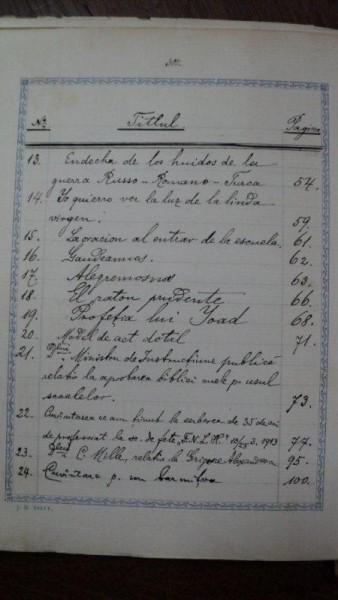 No. Titlul. Pagina
13. Endecha de los huidos de la
guerra Russo-Romano-Turca 54.
14. Yo quierro ver la luz de la linda
virgen. 59.
15. La oracion al entrar de la escuela. 61.
16. Gaudeamus. 62.
17. Alegremosna 63.
18. El raton prudente 66.
19. Profetia lui Ioad 68.
20. Model de act dotal 71.
21. Ministru de Instrucțiune publică
relativ la aprobarea bibliei mele p. usul
scoalelor. 73.
22. Cuvântarea ce am ținut la serbarea de 35 de ani
de profesorat la sc. de fete 1913 77.
23. C. Mille, relativ la Grigore 95.
24. Cuvântare p. un barmitva 100.